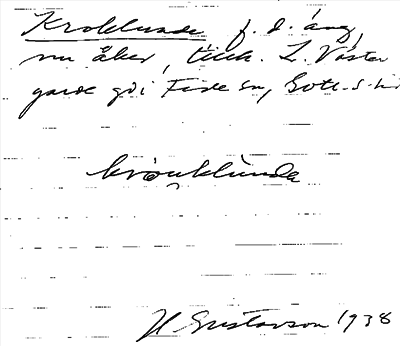 Kroklunde f. d. äng,
nu åker, tillh. L. Väster
garde gd i Fide sn, Gotl. s. hd
krōu̯klùnda
H Gustavson 1938